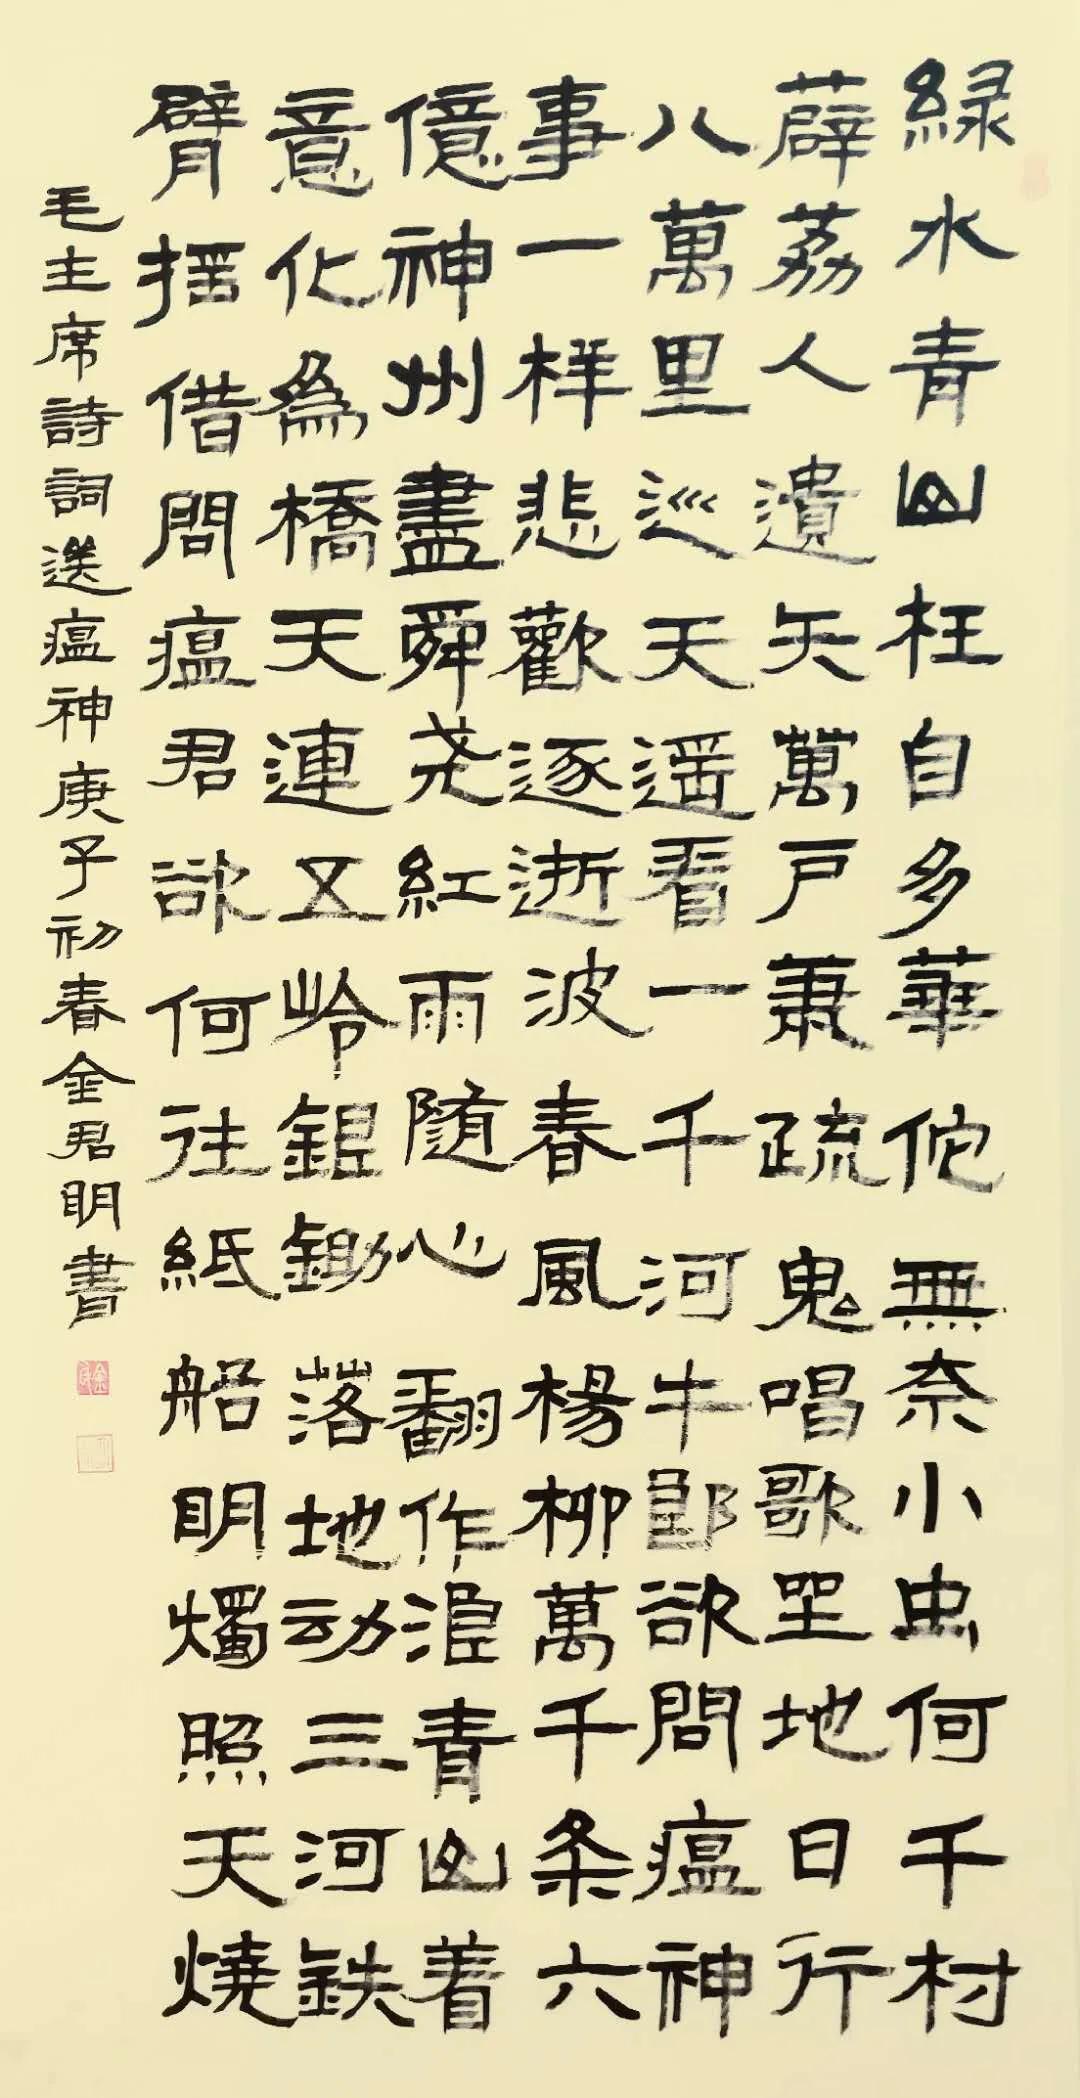 緑水青山枉自多華佗無奈小虫何千村
薜荔人遺矢萬戶蕭疏鬼唱歌坐地日行
八萬里巡天遥看一千河牛郎欲問瘟神
事一样悲歡逐逝波春風楊柳萬千条六
億神州盡舜尧紅雨随心翻作浪青山着
意化為橋天連五岭銀鋤落地动三河鉄
臂摇借問瘟君欲何往紙船明燭照天燒
毛主席詩詞送瘟神庚子初春金君明書